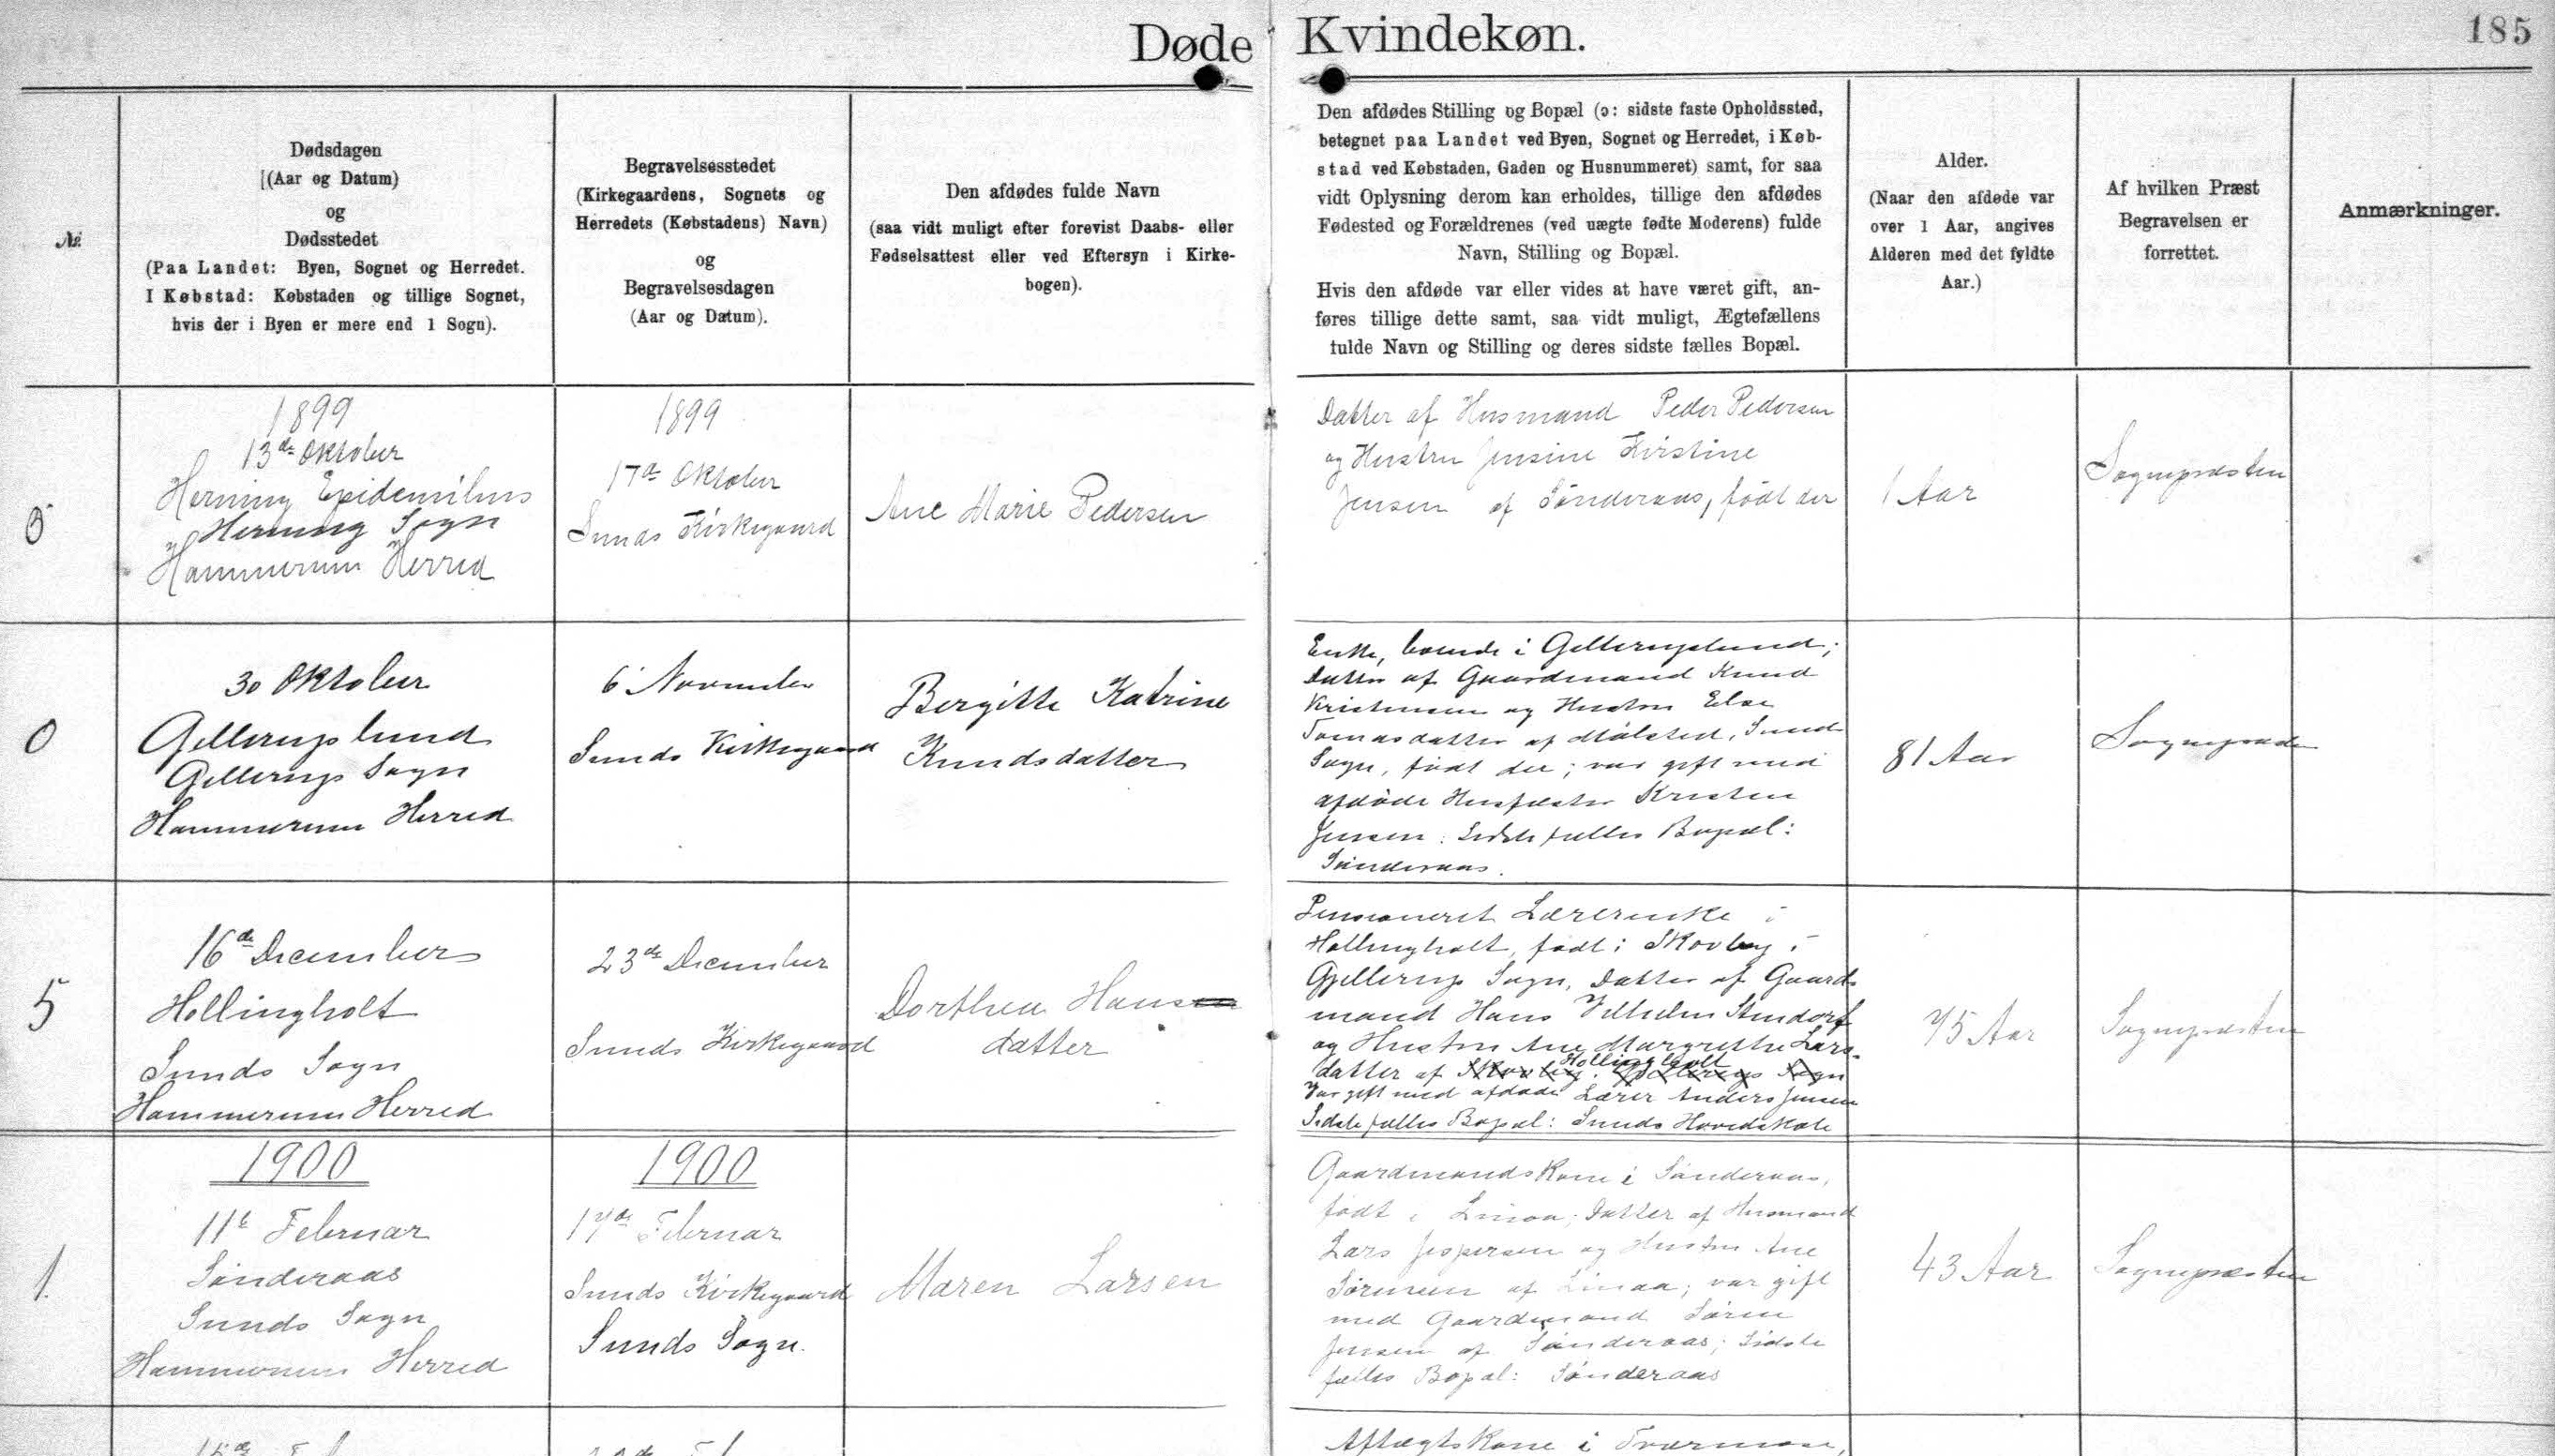 Døde Kvindekøn.
185
№
Dødsdagen
(Aar og Datum)
og
Dødsstedet
(Paa Landet: Byen, Sognet og Herredet.
I Købstad: Købstaden og tillige Sognet,
hvis der i Byen er mere end 1 Sogn).
Begravelsesstedet
(Kirkegaardens, Sognets og
Herredets (Købstadens) Navn)
og
Begravelsesdagen
(Aar og Datum).
Den afdødes fulde Navn
(saa vidt muligt efter forevist Daabs- eller
Fødselsattest eller ved Eftersyn i Kirke-
bogen).
Den afdødes Stilling og Bopæl (ɔ: sidste faste Opholdssted,
betegnet paa Landet ved Byen, Sognet og Herredet, i Køb-
stad ved Købstaden, Gaden og Husnummeret) samt, for saa
vidt Oplysning derom kan erholdes, tillige den afdødes
Fødested og Forældrenes (ved uægte fødte Moderens) fulde
Navn, Stilling og Bopæl.
Hvis den afdøde var eller vides at have været gift, an-
føres tillige dette samt, saa vidt muligt, Ægtefællens
fulde Navn og Stilling og deres sidste fælles Bopæl.
Alder.
(Naar den afdøde var
over 1 Aar, angives
Alderen med det fyldte
Aar.)
Af hvilken Præst
Begravelsen er
forrettet.
Anmærkninger.
1899
13de Oktober
Herning Epidemihus
Herning Sogn
Hammerum Herred
1899
17de Oktober
Sunds Kirkegaard
Ane Marie Pedersen
Datter af Husmand Peder Pedersen
og Hustru Jensine Kirstine
Jensen af Sönderaas, född der
1 Aar
Sognepræsten
0
30 Oktober
Gelleruplund
Gellerup Sogn
Hammerum Herred
6 November
Sunds Kirkegaard
Bergitte Katrine
Knudsdatter
Enke, boende i Gelleruplund;
Datter af Gaardmand Knud
Kristensen og Hustru Else
Tomasdatter af Mölsted, Sunds
Sogn, födt der; var gift med
afdöde Husfæster Kristen
Jensen. Sidste fælles Bopæl:
Sönderaas.
81 Aar
Sognepræsten
5
16de December
Hollingholt
Sunds Sogn
Hammerum Herred
23de December
Sunds Kirkegaard
Dorthea Hansen
datter
Pensioneret Lærerenke i
Hollingholt, födt i Skovby i
Gjellerup Sogn, Datter af Gaard-
mand Hans Vilhelm Stendorf
og Hustru Ane Margrethe Lars-
Hollingholt
datter af Skovby. Gjellerup Sogn
Var gift med afdöde Lærer Anders Jensen
Sidste fælles Bopæl: Sunds Hovedskole
75 Aar
Sognepræsten
1.
1900
11te Februar
Sönderaas
Sunds Sogn
Hammerum Herred
1900
17de Februar
Sunds Kirkegaard
Sunds Sogn.
Maren Larsen
Gaardmandskone i Sönderaas,
födt i Linaa; Datter af Husmand
Lars Jespersen og Hustru Ane
Sörensen af Linaa; var gift
med Gaardmand Sören
Jensen af Sönderaas; Sidste
fælles Bopæl: Sönderaas
43 Aar
Sognepræsten
Aftægtskone i Tværmose,